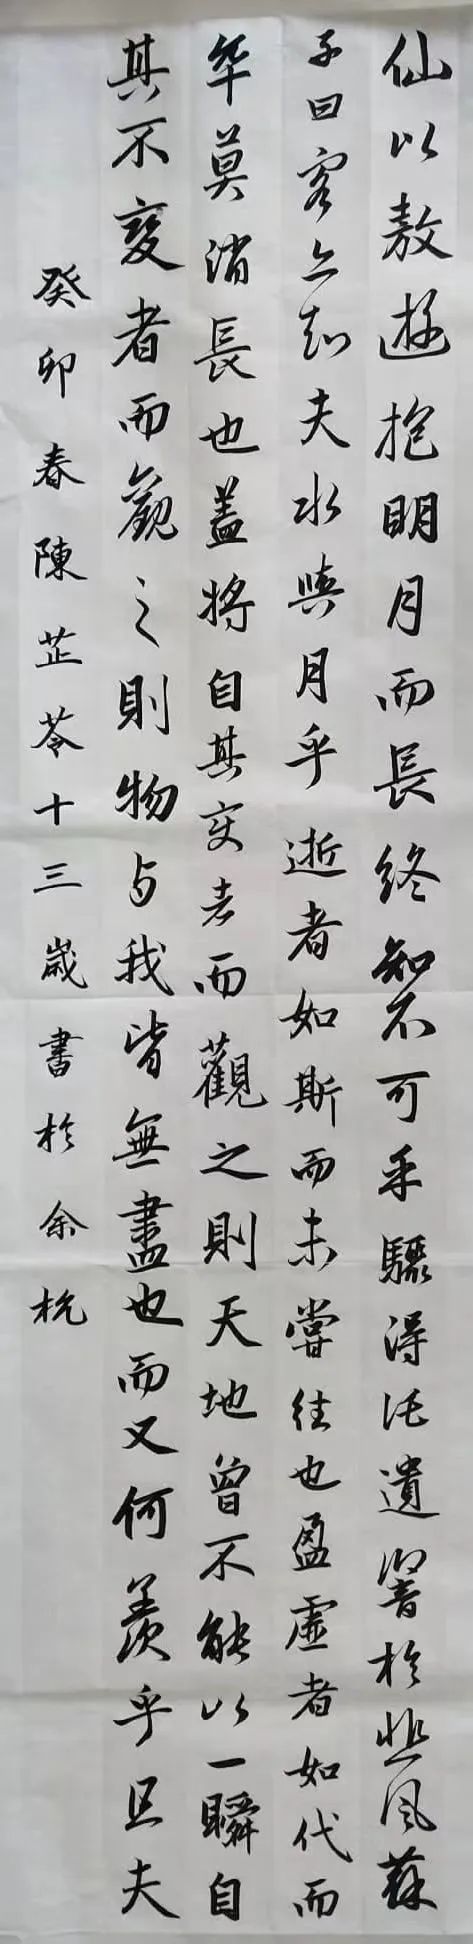 仙以敖遊抱明月而長終知不可乎驟得託遺響於悲風蘇
子曰客亦知夫水與月乎逝者如斯而未嘗往也盈虛者如代而
卒莫消長也蓋將自其变者而觀之則天地曾不能以一瞬自
其不變者而觀之則物与我皆無盡也而又何羨乎且夫
癸卯春陳芷苓十三歲書於余杭